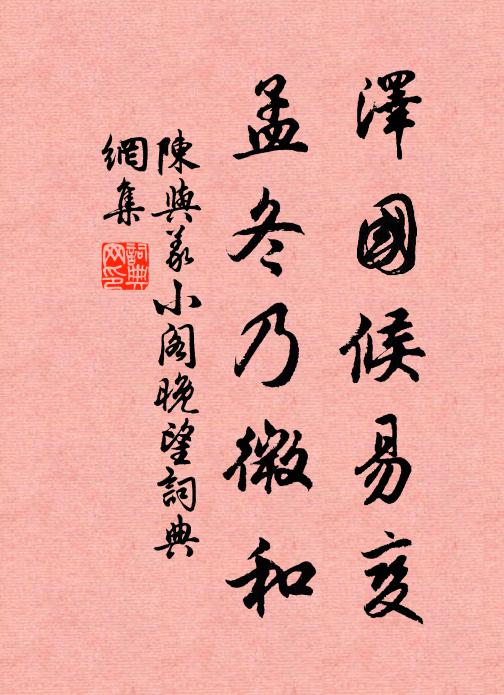 澤國候易變
孟冬乃微和
陳與義小閣晚望詞典
網集
詞典
网印